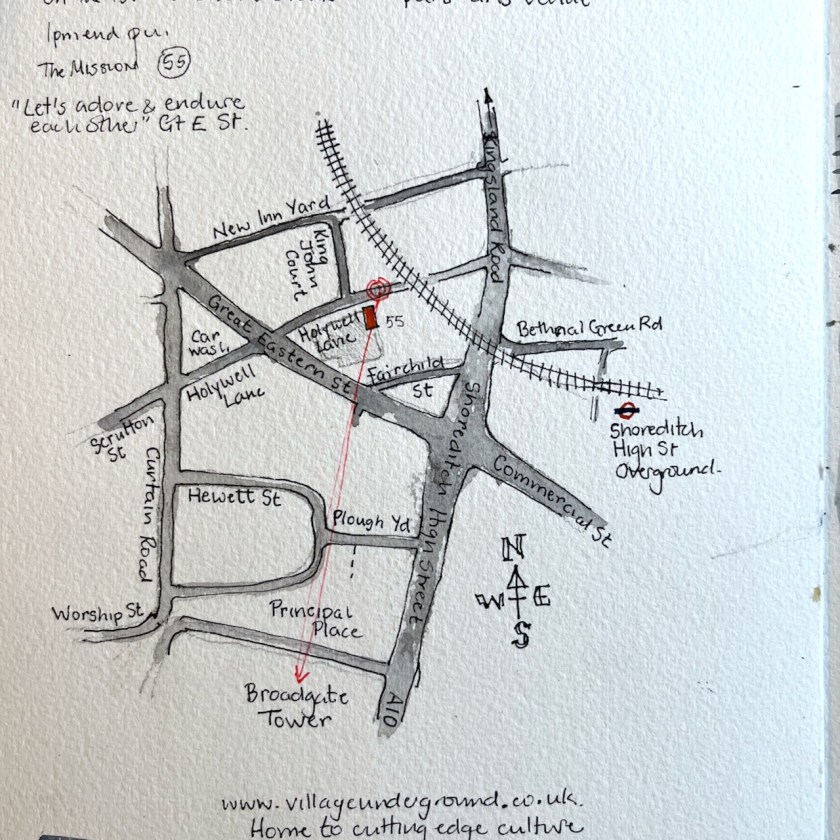 1pm end qu.
The Mission 55
"Let's adore & endure
each other" Gt E St.
Kingsland Road
New Inn Yard
King
John
Court
Great Eastern St
Car
wash
Holywell
Lane
55
Bethnal Green Rd
Fairchild
St
Holywell
Lane
Scrutton
St
Shoreditch
High St
Overground.
Curtain Road
Shoreditch High Street
Commercial St
Hewett St
Plough Yd
N
W E
S
Worship St
Principal
Place
Broadgate
Tower
A10
www.villageunderground.co.uk.
Home to cutting edge culture